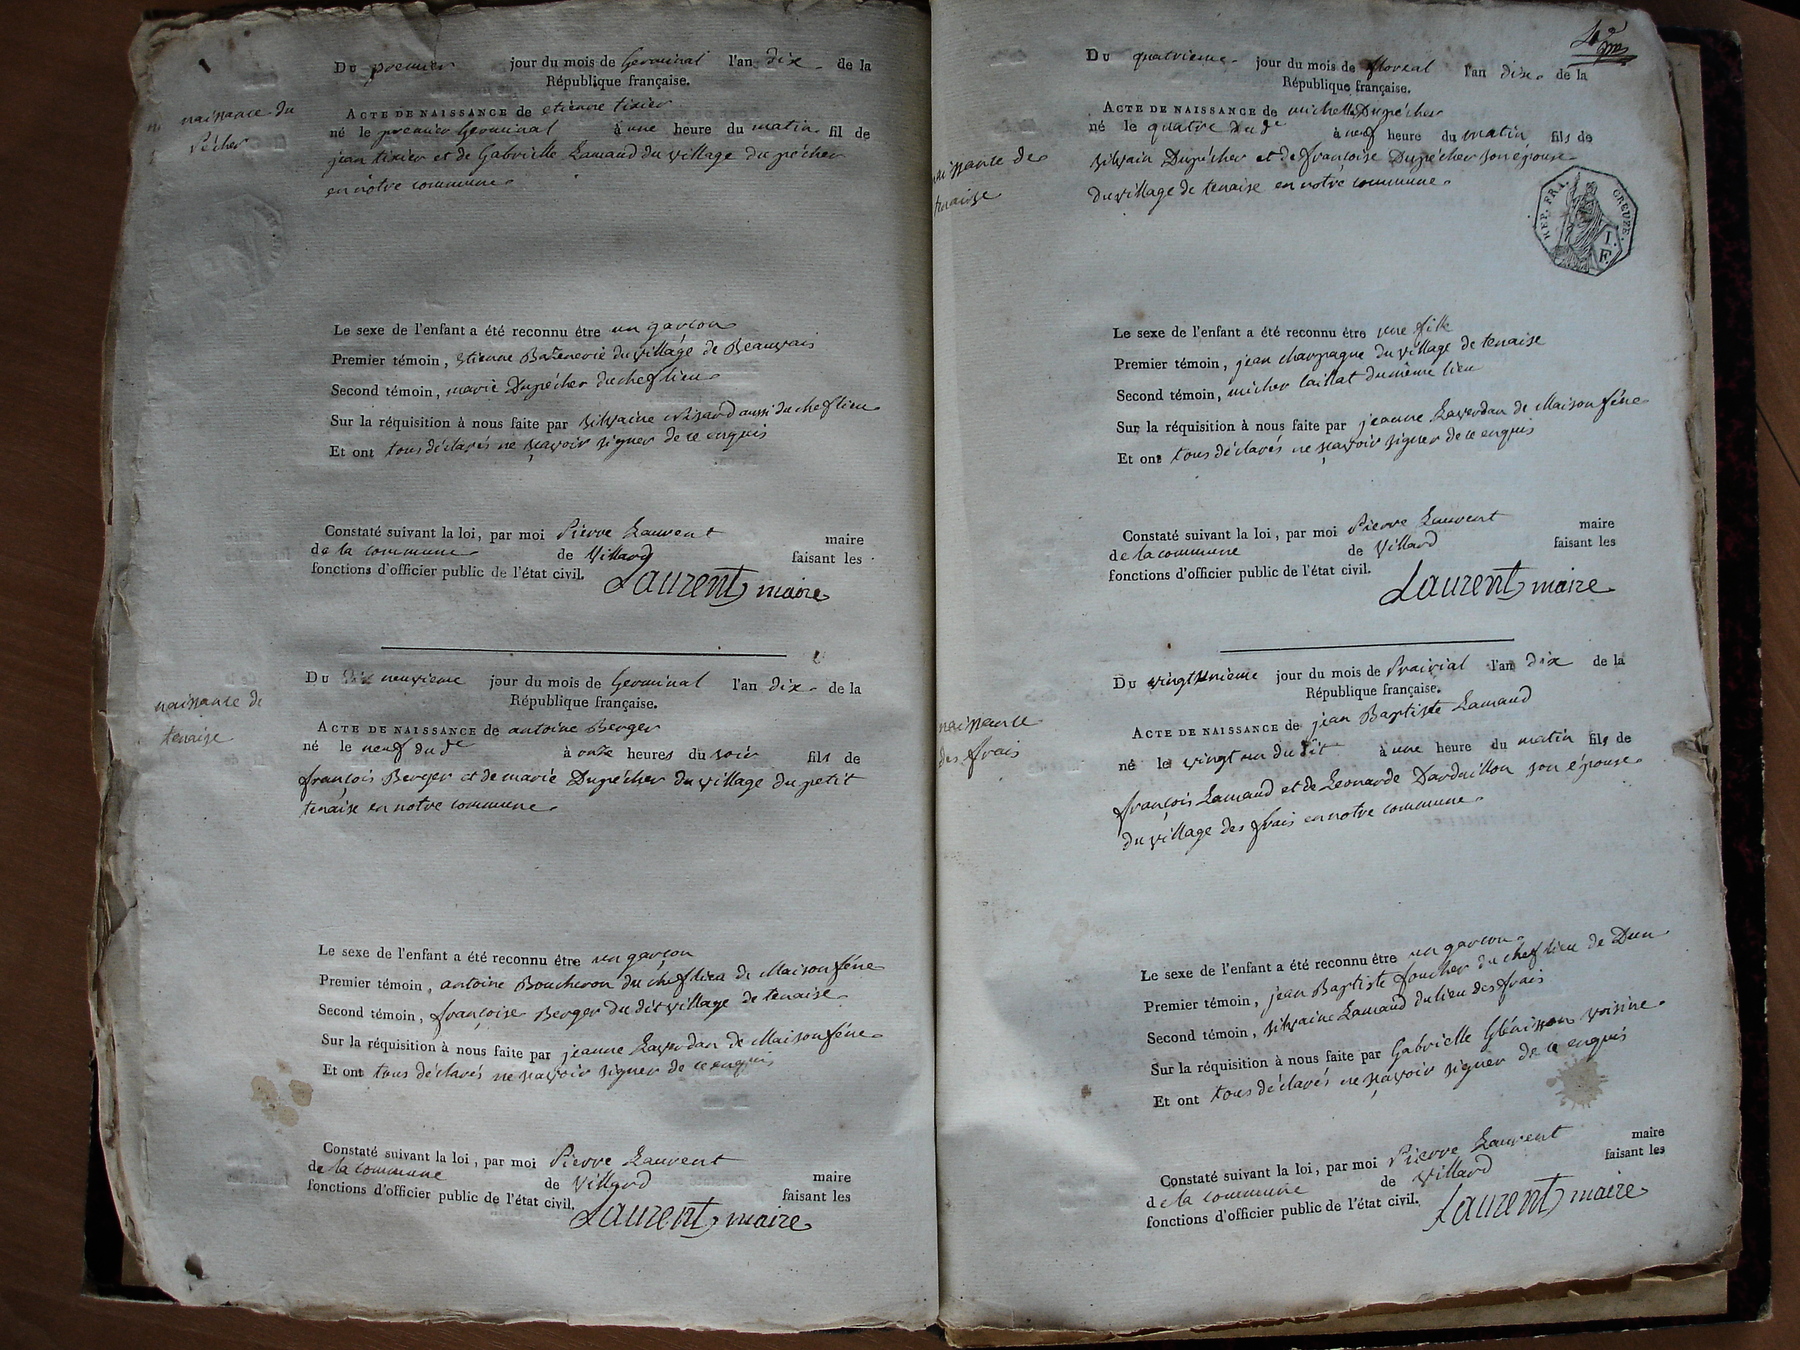 naissance du
Pécher
Du premier jour du mois de Germinal l'an dix de la
République française.
ACTE DE NAISSANCE de etienne tixier
né le premier Germinal à une heure du matin fil de
jean tixier et de Gabrielle Lamaud du village du pécher
en notre commune
Le sexe de l'enfant a été reconnu être un garcon
Premier témoin, Etienne du village de Beauvais
Second témoin, marie Dupécher du chef lieu
Sur la réquisition à nous faite par silvaine aussi du chef lieu
Et ont tous déclarés ne sçavoir signer de ce enquis
Constaté suivant la loi, par moi Pierre Laurent maire
de la commune de Villard faisant les
fonctions d'officier public de l'état civil.
Laurent maire
naissance de
tenaise
Du dix neuvieme jour du mois de Germinal l'an dix de la
République française.
ACTE DE NAISSANCE de antoine Berger
né le neuf du dt à onze heures du soir fils de
françois Berger et de marie Dupécher du village du petit
tenaise en notre commune
Le sexe de l'enfant a été reconnu être un garçon
Premier témoin, antoine Boucheron du chef lieu de Maison féne
Second témoin, françoise Berger du dit village de tenaise
Sur la réquisition à nous faite par jeanne Laverdan de Maison féne
Et ont tous déclarés ne sçavoir signer de ce enquis
Constaté suivant la loi, par moi Pierre Laurent maire
de la commune de Villard faisant les
fonctions d'officier public de l'état civil.
Laurent maire
naissance de
tenaise
Du quatrieme jour du mois de floreal l'an dix de la
République française.
ACTE DE NAISSANCE de michelle Dupécher
né le quatre du dt à neuf heure du matin fils de
silvain Dupécher et de françoise Dupécher son épouse
du village de tenaise en notre commune
REP. FRA. CREUZE.
Le sexe de l'enfant a été reconnu être une fille
Premier témoin, jean champagne du village de tenaise
Second témoin, micher taillat du même lieu
Sur la réquisition à nous faite par jeanne Laverdan de Maison féne
Et ont tous déclarés ne sçavoir signer de ce enquis
Constaté suivant la loi, par moi Pierre Laurent maire
de la commune de Villard faisant les
fonctions d'officier public de l'état civil.
Laurent maire
naissance
des frais
Du vingt unieme jour du mois de Prairial l'an dix de la
République française.
ACTE DE NAISSANCE de jean Baptiste Lamaud
né le vingt un du dit à une heure du matin fils de
françois Lamaud et de Leonarde Dardaillon son épouse
du village des frais en notre commune
Le sexe de l'enfant a été reconnu être un garçon
Premier témoin, jean Baptiste foucher du chef lieu de Dun
Second témoin, silvaine Lamaud du lieu des frais
Sur la réquisition à nous faite par Gabrielle Glénisson voisine
Et ont tous déclarés ne sçavoir signer de ce enquis
Constaté suivant la loi, par moi Pierre Laurent maire
de la commune de Villard faisant les
fonctions d'officier public de l'état civil.
Laurent maire